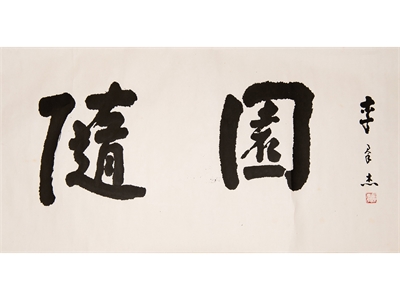 隨園
李羣杰